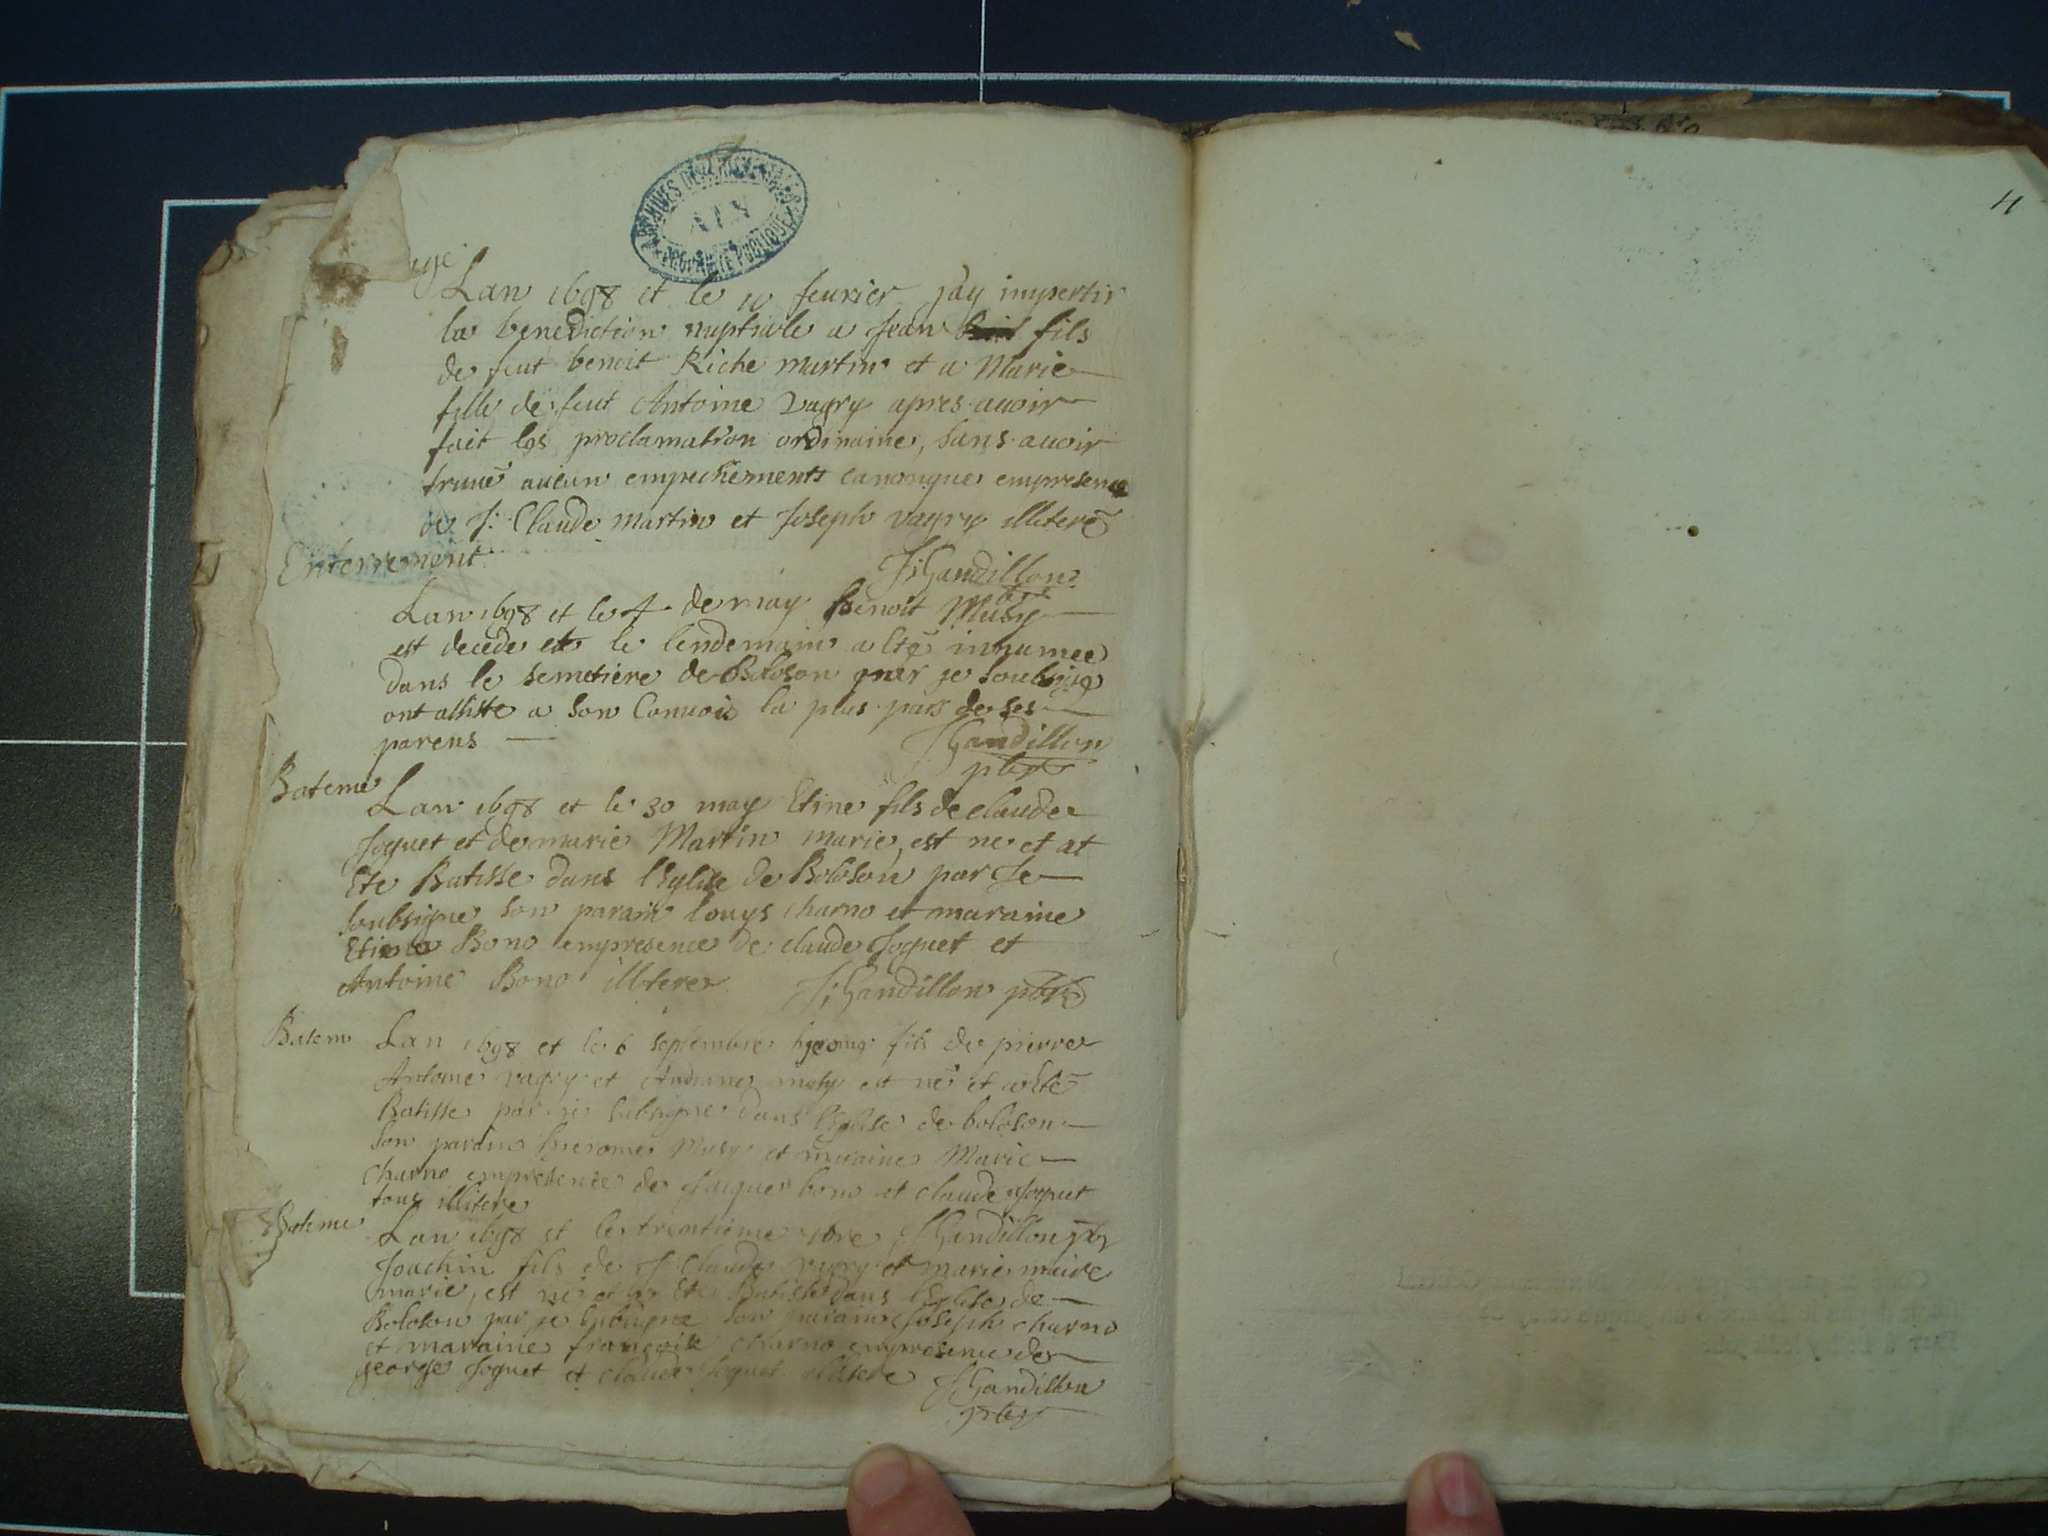 AIN
Lan 1698 et le 10 feurier jay impertir
la benediction nuptiale a Jean fils
de feut benoit Riche martin et a Marie
fille de feut Antoine vagry apres auoir
fait les proclamation ordinaine, sans auoir
truué aucun empechements canonique empresence
de J: Claude martin et Joseph vagry illiteré
J: Gandillon
Enterrement
Lan 1698 et le 4 de may Benoit Musy
est decede et le lendemain a eté inhumee
dans le semetiere de Boloson par je soubsigne
ont assiste a son Conuois la plus part de ses
parens
J Gandillon
pbre
Bateme
Lan 1698 et le 30 may Etine fils de claude
Joquet et de marie Martin marie, est ne et at
Ete Batisse dans l'Eglise de Boloson par Je
soubsigne son parain louys charno et maraine
Etiena Bono empresence de claude Joquet et
Antoine Bono illiterez J: Gandillon pbre
Batem
Lan 1698 et le 6 septembre fils de pierre
Antoine vagry et musy est né et a Eté
Batisse par je subsigne dans l'Eglise de boloson
son parain hierome Musy et maraine Marie
charno empresence de Jacque bono et claude Joquet
tous illitere
J Gandillon pbr
Bateme
Lan 1698 et le trentieme
Joachin fils de J Claude vagry et marie maire
marie, est né et a Eté Batisse dans l'Eglise de
Boloson par je subsigne son parain Joseph charno
et maraine françoise charno empresence de
george Joquet et claude Joquet illitere
J Gandillon
pbre